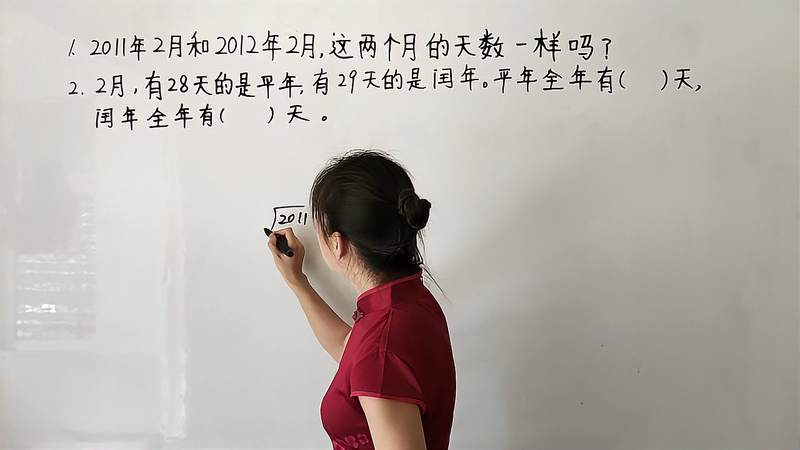 1. 2011年2月和2012年2月,这两个月的天数一样吗?
2. 2月,有28天的是平年,有29天的是闰年。平年全年有( )天,
闰年全年有( )天。
2011